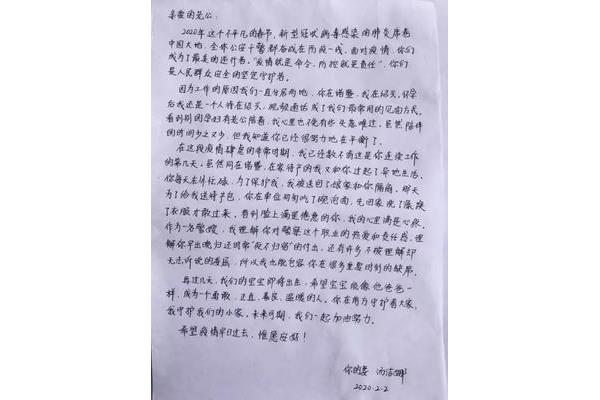 亲爱的老公:
2020年这个不平凡的春节,新型冠状病毒感染的肺炎席卷
中国大地,全体公安干警都奋战在防疫一线,面对疫情,你们
成为了最美的逆行者。"疫情就是命令,防控就是责任",你们
是人民群众安全的坚定守护者。
因为工作的原因我们一直分居两地,你在诸暨,我在绍兴,怀孕
后我还是一个人待在绍兴,视频通话成了我们最常用的见面方式。
看到别的孕妇有老公陪着,我心里也不免有些失落难过,虽然陪伴
的时间少之又少,但我知道你已经很努力地在平衡了。
在这段疫情肆虐的非常时期,我已经数不清这是你连续工作
的第几天,虽然同在诸暨,在家待产的我又和你过起了异地生活。
你每天在外忙碌,为了保护我,我被送回了娘家和你隔离。那天
为了给我送待产包,你在单位匆匆吃了碗泡面,先回家洗了澡换
了衣服才敢过来,看到脸上满是倦意的你,我的心里满是心疼。
作为一名警嫂,我理解你对警察这个职业的热爱和责任感,理
解你早出晚归还时常"夜不归宿"的付出,还有许多不被理解却
无处诉说的委屈,所以我也能包容你在很多重要时刻的缺席。
再过几天,我们的宝宝即将出生,希望宝宝能像他爸爸一
样,成为一个勇敢、正直、善良、温暖的人。你在前方守护着大家,
我守护我们的小家。未来可期,我们一起加油努力。
希望疫情早日过去,惟愿安好!
你的妻 汤洁
2020.2.2